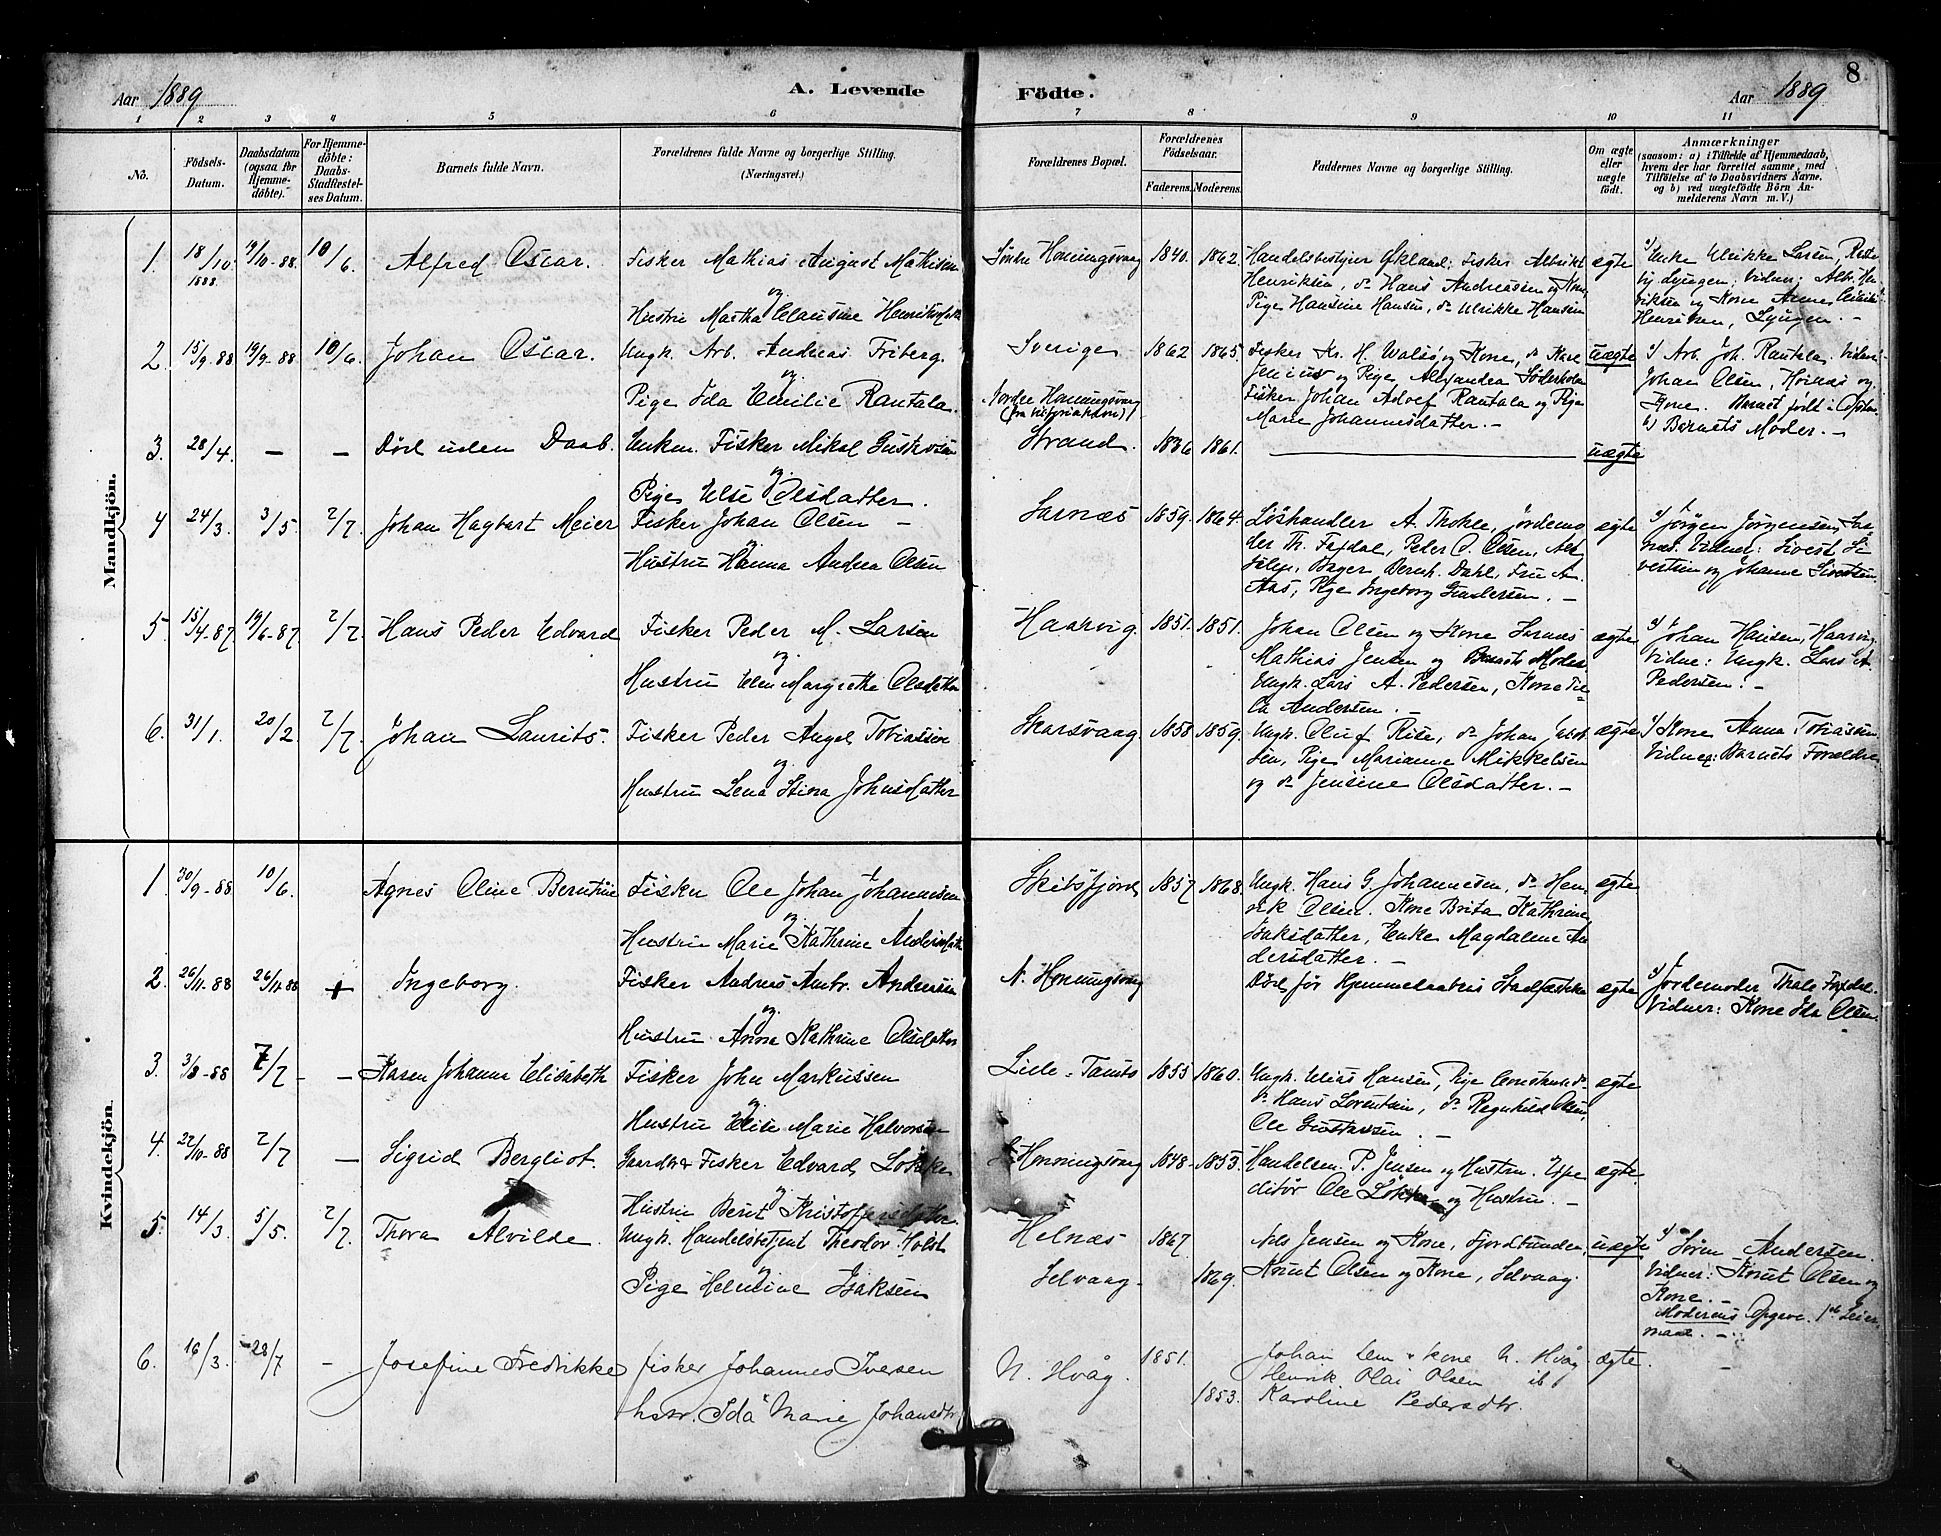 Aar 1889
A. Levende Födte.
Aar 1889
8
1 2 3 4 5 6 7 8 9 10 11
No.
Födsels-Datum.
Daabsdatum (ogsaa for Hjemmedöbte).
For Hjemmedöbte: Daabs-Stadfæstelses Datum.
Barnets fulde Navn.
Forældrenes fulde Navne og borgerlige Stilling.
(Næringsvei.)
Forældrenes Bopæl.
Forældrenes Födselsaar.
Faderens. Moderens.
Faddernes Navne og borgerlige Stilling.
Om ægte eller uægte født.
Anmærkninger
(saasom: a) i Tilfælde af Hjemmedaab,
hvem der har forrettet samme, med
Tilföielse af to Daabsvidners Navne,
og b) ved uægtefödte Börn Anmelderens Navn m.V.)
Mandkjön.
1. 18/10 1888. 19/10-88. 10/6. Alfred Oscar. Fisker Mathias August Mathisen
og
Hustru Martha Clausine
Søndre Honningsvaag 1840. 1862. Handelsbestyrer Økland; Fisker Albrikt
Henriksen, do Hans Andreassen og Kone,
Pige Hansine Hansen, do Ulrikke Hansen
ægte
a) Enke Ulrikke Larsen,
Lyngen; Vidner:
og Kone Anne
Henriksen, Lyngen. -
2. 15/9 88 19/9-88 10/6. Johan Oscar. Ungk. Arb. Andreas Friberg.
og
Pige Ida Emilie Rantala.
Sverige 1862 1865.
Nordre Honningsvaag
Fisker Kr. H. Walsø og Kone, do Karl
Jenius og Pige Alexandra Söderholm
Fisker Johan Adolf Rantala og Pige
Marie Johannesdatter. -
uægte
a) Arb. Joh. Rantala. Vidner:
Johan Olsen, og
Kone. Barnet født i
b) Barnets Moder. -
3. 28/4. - - Död uden Daab. Enkm. Fisker Mikal Gustavsen
og
Pige Else Olsdatter.
Strand. 1836 1861. uægte
4 24/3. 3/5. 2/7. Johan Hagbart Meier Fisker Johan Olsen -
og
Hustru Hanna Andrea Olsen
Sarnæs 1859. 1864. Løshandler A. Thohle, Jordemoder
Th. Faxdal, Peder O. Olsen,
Bager Bernh. Dahl, Fru A.
Aas, Pige Ingeborg Gundersen. -
ægte
a) Jørgen Jørgensen, Sarnæs.
Vidner: Sivert Sivertsen
og Johanne Sivertsen.
5. 15/4-87 19/6-87 2/7. Hans Peder Edvard Fisker Peder M. Larsen
og
Hustru Elen Margrethe Olsdatter
Haarvig. 1851. 1851. Johan Olsen og Kone Sarnæs
Mathias Jensen og Barnets Moder
Ungk. Lars A. Pedersen, Kone
Andersen. -
ægte
a) Johan Hansen, Haarvig.
Vidne: Ungk. Lars A.
Pedersen. -
6. 31/1. 20/2 2/7. Johan Laurits. Fisker Peder Angel Tobiassen
og
Hustru Lena Stina Johnsdatter
Skarsvaag 1858 1859. Ungk. Oluf Riise, do Johan
Pige Marianne Mikkelsen
og do Jensine Olsdatter. -
ægte
a) Kone Anna Tobiassen.
Vidner: Barnets Forældre.
Kvindekjön.
1. 30/9-88 10/6. Agnes Oline Berntine Fisker Ole Johan Johannesen
og
Hustru Marie Kathrine
Skibsfjord 1857 1868. Ungk. Hans G. Johannesen, do Henrik
Olsen. Kone Brita Kathrine
Isaksdatter, Enke Magdalene Andersdatter. -
ægte
2. 26/11-88 26/11-88 + Ingeborg. Fisker Andreas Ambr. Andersen
og
Hustru Anna Kathrine Olsdatter
N. Honningsvaag
Död før Hjemmedaabens Stadfæstelse ægte
a) Jordemoder Thale Faxdal.
Vidner: Kone Ida Olsen.
3. 3/8-88 7/7 - - Karen Johanna Elisabeth Fisker John Markussen
og
Hustru Elise Marie Halvorsen
Lille-Tamsø 1855 1860. Ungk. Elias Hansen, Pige
do Hans Lorentsen, do Ragnhild Olsen,
Ole Gustavsen. -
ægte
4. 22/10-88 2/7 - Sigrid Bergliot. Fisker Edvard Løkke
og
Hustru Berit Kristoffersdatter
S. Honningsvaag 1848- 1853. Handelsm. P. Jensen og Hustru. Expeditør
Ole Løkke og Hustru. -
ægte.
5. 14/3. 5/5. 2/7. Thora Alvilde. Ungk. Handelsbetjent Theodor Holst
og
Pige Helmine Isaksen
Helnæs 1867
Selvaag. 1869.
Nils Jensen og Kone, Fjordbunden,
Knut Olsen og Kone, Selvaag.
uægte
a) Søren Andersen.
Vidner: Knut Olsen og
Kone. -
Moderens Opgave. 1ste Leiermaal. -
6. 16/3. 28/7 - Josefine Fredrikke fisker Johannes Iversen
hstr. Ida Marie Johansdtr
N. Hvåg. 1851.
1853.
Johan Lem + kone N. Hvåg
Henrik Olai Olsen ib
Karoline Pedersdtr.
ægte. -